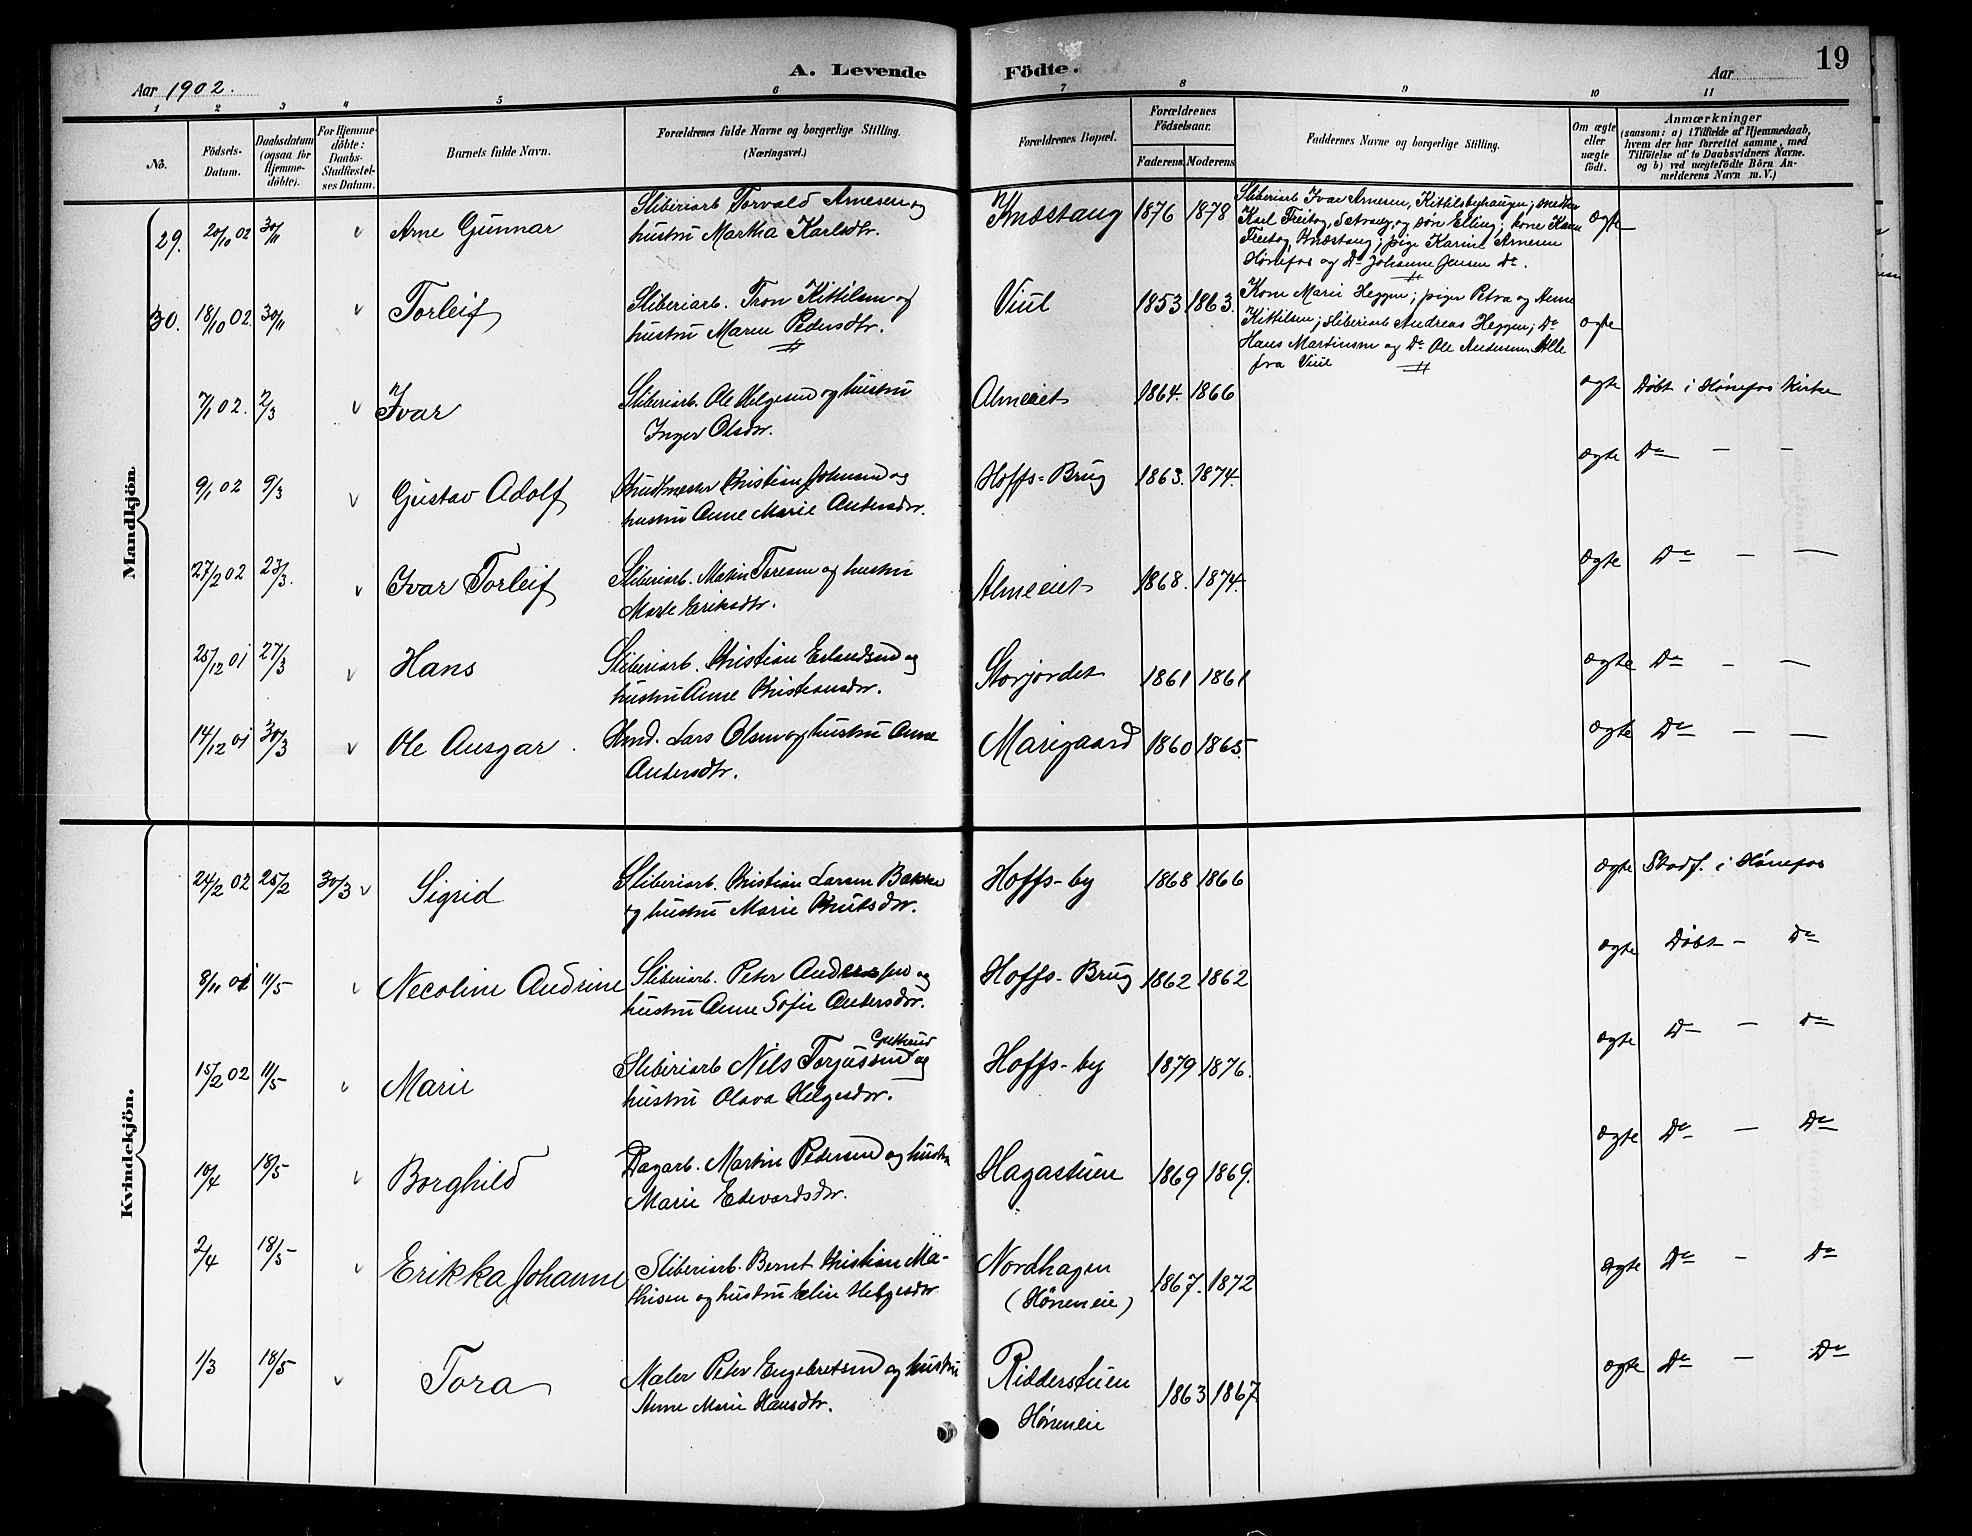 19
Aar 1902.
A. Levende
Födte.
Aar
1 2 3 4 5 6 7 8 9 10 11
No.
Födsels-
Datum.
Daabsdatum
(ogsaa for
Hjemme-
döbte).
For Hjemme-
döbte:
Daabs-
Stadfæstel-
ses Datum.
Barnets fulde Navn.
Forældrenes fulde Navne og borgerlige Stilling.
(Næringsvei.)
Forældrenes Bopæl.
Forældrenes
Födselsaar.
Faderens. Moderens.
Faddernes Navne og borgerlige Stilling.
Om ægte
eller
uægte
født.
Anmærkninger
(saasom: a) i Tilfælde af Hjemmedaab,
hvem der har forrettet samme, med
Tilföielse af to Daabsvidners Navne.
og b) ved uægtefödte Börn An-
melderens Navn m. V.)
Mandkjön.
29. 20/10 02 30/11 Arne Gunnar
Sliberiarb Torvald Arnesen og
hustru Martha Karlsdtr.
Knæstang 1876 1878
Sliberiarb Ivar Arnesen, Kittilsbyhaugen; smeden
Karl Freitog, Setrang, og søn Elling; kone Karen
Freitog, Knæstang; pige Karine Arnesen
Hønefos og Do Johanne Jensen do.
ægte
30. 18/10 02. 30/11 Torleif
Sliberiarb. Tron Kittilsen og
hustru Maren Pedersdtr.
Viul 1853 1863.
Kone Marie Heggen; piger Petra og Anne
Kittilsen; sliberiarb Andreas Heggen; Do
Hans Martinsen og Do Ole Andersen Alle
fra Viul
ægte
7/1 02. 2/3 Ivar
Sliberiarb. Ole Helgesen og hustru
Inger Olsdtr.
Almeiet 1864. 1866
ægte Døbt i Hønefos Kirke
9/1 02 9/3 Gustav Adolf
Kristian Johnsen og
hustru Anne Marie Andersdtr.
Hoffs-Brug 1863. 1874.
ægte Do — —
27/2 02 23/3. Ivar Torleif
Sliberiarb. Martin Toresen og hustru
Marte Eriksdtr.
Almeiet 1868. 1874.
ægte Do — —
25/12 01 27/3 Hans
Sliberiarb. Kristian Erlandsen og
hustru Anne Kristiansdtr.
Storjordet 1861 1861
ægte Do — —
14/12 01 30/3 Ole Ansgar.
Lars Olsen og hustru Anne
Andersdtr.
Marigaard 1860 1865.
ægte Do — —
Kvindekjön.
24/2 02 25/2 30/3 Sigrid
Sliberiarb. Kristian Larsen Bakke
og hustru Marie Knutsdtr.
Hoffs-by 1868 1866
ægte Stadf. i Hønefos
8/11 01 11/5 Necoline Andrine
Sliberiarb. Peter Anderssen og
hustru Anne Sofie Andersdtr.
Hoffs-Brug 1862 1862
ægte Døbt — Do
15/2 02 11/5 Marie
Sliberiarb Nils Torjussen og
hustru Olava Helgesdtr.
Hoffs-by 1879 1876.
ægte Do — Do
10/4 18/5 Borghild
Dagarb. Martin Pedersen og hustru
Marie Edvardsdtr.
Hagastuen 1869 1869.
ægte Do — Do
2/4 18/5 Erikka Johanne
Sliberiarb. Bernt Kristian Ma-
thisen og hustru Elin Helgesdtr
Nordhagen
(Høneneie) 1867. 1872
ægte Do — Do
1/3 18/5 Tora
Maler Peter Engebretsen og hustru
Anne Marie Hansdtr.
Ridderstuen
Høneneie 1863 1867.
ægte Do — Do